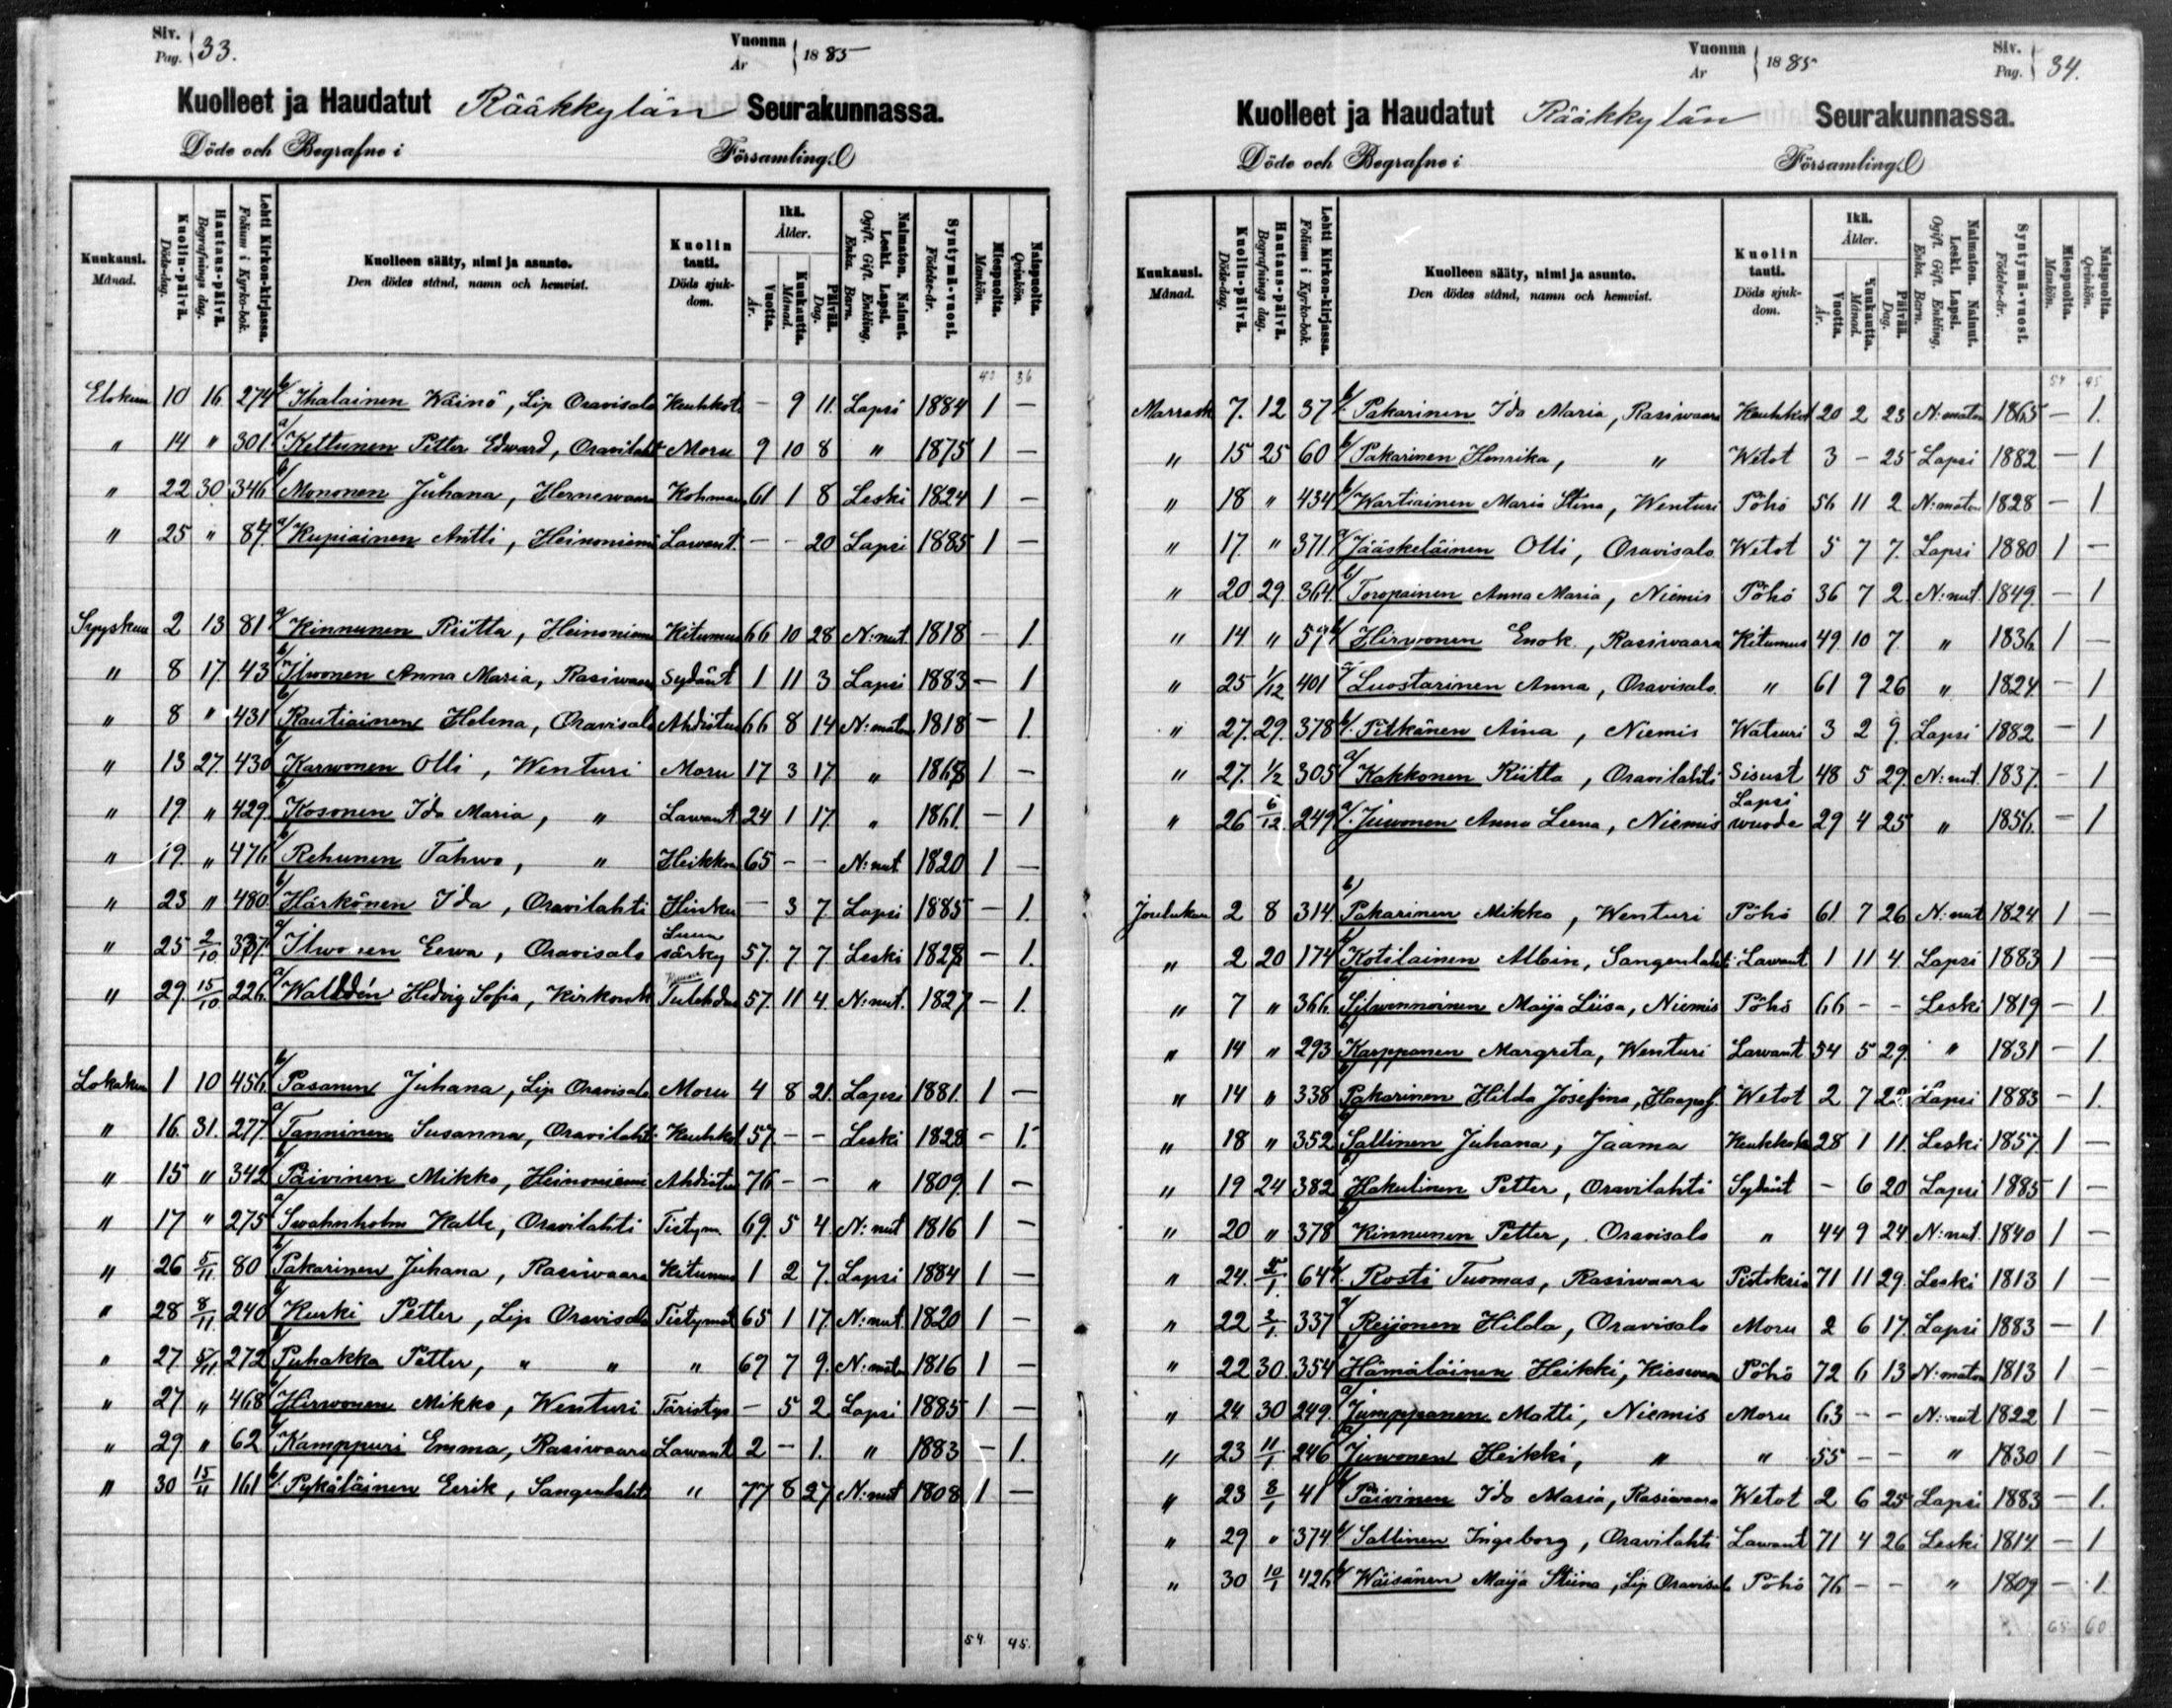 Siv.
Pag. 33.
Vuonna
År 1885
Kuolleet ja Haudatut Rääkkylän Seurakunnassa.
Döde och Begrafne i Församling.
Kuukausi. Månad. Kuolin-päivä. Döds-dag. Hautaus-päivä. Begrafnings dag. Lehti Kirkon-kirjassa. Folium i Kyrko-bok. Kuolleen sääty, nimi ja asunto. Den dödes stånd, namn och hemvist. Kuolin tauti. Döds sjukdom. Ikä. Ålder. Vuotta. År. Kuukautta. Månad. Päivää. Dag. Naimaton. Nainut. Leski. Lapsi. Ogift. Gift. Enkling, Enka. Barn. Syntymä-vuosi. Födelse-år. Miespuolta. Mankön. Naispuolta. Qvinkön.
43 36
Elokuu 10 16 274 b/ Ihalainen Wäinö, Lip. Oravisalo Keuhkot - 9 11 Lapsi 1884 1 -
" 14 " 301 a/ Kettunen Petter Edward, Oravilaht Moru 9 10 8 " 1875 1 -
" 22 30 346 b/ Mononen Juhana, Hernewaara 61 1 8 Leski 1824 1 -
" 25 " 87 a/ Kupiainen Antti, Heinoniemi Lawant. - - 20 Lapsi 1885 1 -
Syyskuu 2 13 81 a/ Kinnunen Riitta, Heinoniemi Kitumus 66 10 28 N:nut. 1818 - 1.
" 8 17 43 b/ Ilwonen Anna Maria, Rasiwaara Sydänt 1 11 3 Lapsi 1883 - 1
" 8 " 431 b/ Rautiainen Helena, Oravisalo Ahdistus 66 8 14 N:maton 1818 - 1.
" 13 27 430 b/ Karwonen Olli, Wenturi Moru 17 3 17 " 1868 1 -
" 19 " 429 b/ Kosonen Ida Maria, " Lawant 24 1 17 " 1861 - 1
" 19 " 476 b/ Rehunen Tahwo, " 65 - - N:nut 1820 1 -
" 23 " 480 b/ Härkönen Ida, Oravilahti Hinku - 3 7 Lapsi 1885 - 1.
" 25 2/10 337 a/ Ilwonen Eewa, Oravisalo särky 57 7 7 Leski 1828 - 1.
" 29 15/10 226 a/ Walldén Hedvig Sofia, Kirkonk Tulehdus 57 11 4 N:nut. 1827 - 1.
Lokakuu 1 10 456 b/ Pasanen Juhana, Lip. Oravisalo Moru 4 8 21 Lapsi 1881 1 -
" 16 31 277 a/ Tanninen Susanna, Oravilahti Keuhkot 57 - - Leski 1828 - 1.
" 15 " 342 b/ Päivinen Mikko, Heinoniemi Ahdistus 76 - - " 1809 1 -
" 17 " 275 a/ Swahnholm Kalle, Oravilahti Tietym. 69 5 4 N:nut 1816 1 -
" 26 5/11 80 b/ Pakarinen Juhana, Rasiwaara Kitumus 1 2 7 Lapsi 1884 1 -
" 28 8/11 240 b/ Kurki Petter, Lip Oravisalo Tietymät 65 1 17 N:nut 1820 1 -
" 27 8/11 272 b/ Puhakka Petter, " " " 67 7 9 N:maton 1816 1 -
" 27 " 468 b/ Hirwonen Mikko, Wenturi Täristys - 5 2 Lapsi 1885 1 -
" 29 " 62 b/ Kamppuri Emma, Rasiwaara Lawant 2 - 1 " 1883 - 1.
" 30 15/11 161 b/ Pykäläinen Eerik, Sangenlahti " 77 8 27 N:nut 1808 1 -
54. 45.
Vuonna
År 1885
Siv.
Pag. 34.
Kuolleet ja Haudatut Rääkkylän Seurakunnassa.
Döde och Begrafne i Församling.
Kuukausi. Månad. Kuolin-päivä. Döds-dag. Hautaus-päivä. Begrafnings dag. Lehti Kirkon-kirjassa. Folium i Kyrko-bok. Kuolleen sääty, nimi ja asunto. Den dödes stånd, namn och hemvist. Kuolin tauti. Döds sjukdom. Ikä. Ålder. Vuotta. År. Kuukautta. Månad. Päivää. Dag. Naimaton. Nainut. Leski. Lapsi. Ogift. Gift. Enkling, Enka. Barn. Syntymä-vuosi. Födelse-år. Miespuolta. Mankön. Naispuolta. Qvinkön.
54 45.
Marrask 7. 12 37 b/ Pakarinen Ida Maria, Rasiwaara Keuhkot 20 2 23 N:maton 1865 - 1.
" 15 25 60 b/ Pakarinen Henrika, " Wetot 3 - 25 Lapsi 1882 - 1
" 18 " 434 b/ Wartiainen Maria Stina, Wenturi Pöhö 56 11 2 N:maton 1828 - 1
" 17 " 371 a/ Jääskeläinen Olli, Oravisalo Wetot 5 7 7 Lapsi 1880 1 -
" 20 29 364 b/ Toropainen Anna Maria, Niemis Pöhö 36 7 2 N:nut 1849 - 1
" 14 " 59 b/ Hirwonen Enok, Rasiwaara Kitumus 49 10 7 " 1836 1 -
" 25 1/12 401 a/ Luostarinen Anna, Oravisalo " 61 9 26 " 1824 - 1
" 27. 29. 378 b/ Pitkänen Aina, Niemis Watsuri 3 2 9 Lapsi 1882 - 1
" 27. 1/2 305 a/ Kakkonen Riitta, Oravilahti Sisust 48 5 29 N:nut. 1837 - 1
" 26 6/12 249 a/ Juwonen Anna Leena, Niemis Lapsi wuode 29 4 25 " 1856 - 1
Jouluk 2 8 314 b/ Pakarinen Mikko, Wenturi Pöhö 61 7 26 N:nut 1824 1 -
" 2 20 174 b/ Kotilainen Albin, Sangenlahti Lawant 1 11 4 Lapsi 1883 1 -
" 7 " 366 b/ Silwennoinen Maija Liisa, Niemis Pöhö 66 - - Leski 1819 - 1.
" 14 " 293 b/ Karppanen Margreta, Wenturi Lawant 54 5 29 " 1831 - 1.
" 14 " 338 b/ Pakarinen Hilda Josefina, Haapas. Wetot 2 7 22 Lapsi 1883 - 1.
" 18 " 352 b/ Sallinen Juhana, Jaama Keuhkot 28 1 11 Leski 1857 1 -
" 19 24 382 b/ Hakulinen Petter, Oravilahti Sydänt - 6 20 Lapsi 1885 1 -
" 20 " 378 b/ Kinnunen Petter, Oravisalo " 44 9 24 N:nut. 1840 1 -
" 24. 5/1 64 b/ Rosti Tuomas, Rasiwaara Pistoksia 71 11 29 Leski 1813 1 -
" 22 2/1 337 a/ Reijonen Hilda, Oravisalo Moru 2 6 17 Lapsi 1883 - 1
" 22 30 354 b/ Hämäläinen Heikki, Pöhö 72 6 13 N:maton 1813 1 -
" 24 30 249 a/ Jumppanen Matti, Niemis Moru 63 - - N:nut 1822 1 -
" 23 11/1 246 a/ Juwonen Heikki, " " 55 - - " 1830 1 -
" 23 8/1 41 b/ Päivinen Ida Maria, Rasiwaara Wetot 2 6 25 Lapsi 1883 - 1.
" 29 " 374 b/ Sallinen Ingeborg, Oravilahti Lawant 71 4 26 Leski 1814 - 1
" 30 10/1 426 b/ Wäisänen Maija Stiina, Lip Oravisal Pöhö 76 - - " 1809 - 1
65 60